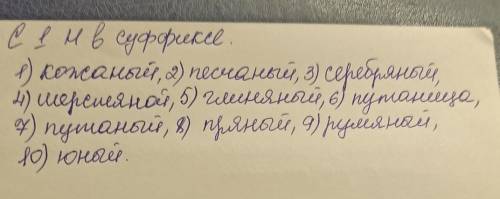 С 1 Н в суффиксе.
1) кожаный, 2) песчаный, 3) серебряный,
4) шерстяной, 5) глиняный, 6) путаница,
7) путаный, 8) пряный, 9) румяный,
10) юный.